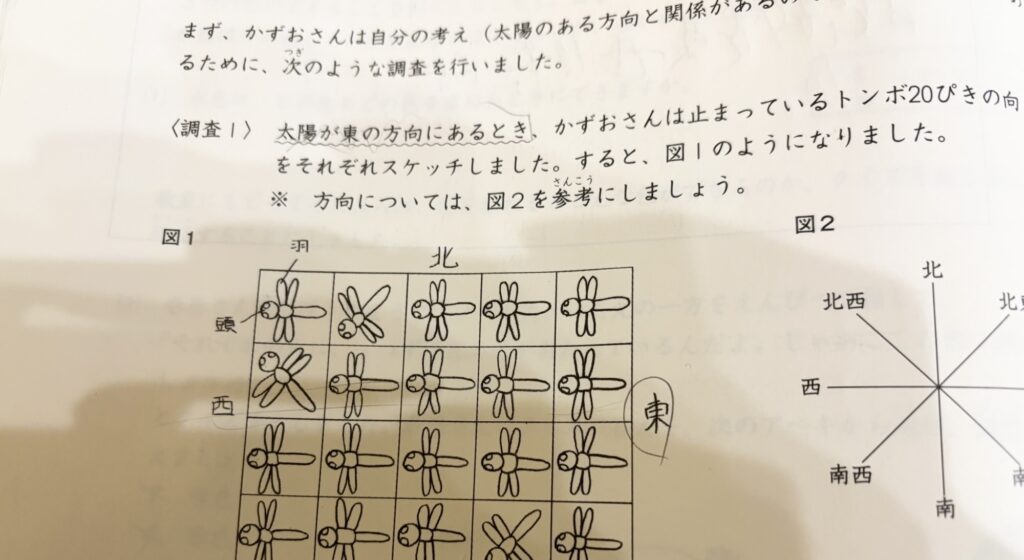 まず、かずおさんは自分の考え（太陽のある方向と関係があるの
るために、次のような調査を行いました。
つぎ
〈調査１〉 太陽が東の方向にあるとき、かずおさんは止まっているトンボ20ぴきの向
をそれぞれスケッチしました。すると、図１のようになりました。
※ 方向については、図２を参考にしましょう。
さんこう
図１
羽
頭
北
西
東
図２
北
北西
西
南西
南